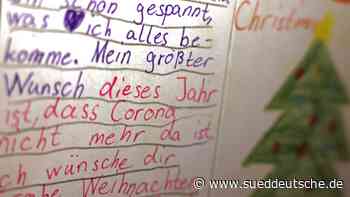 schon gespannt,
was ich alles be-
komme. Mein größter
Wunsch dieses Jahr
ist, dass Corona
nicht mehr da ist
ch wünsche dir
Weihnachte
Christm
www.sueddeutsche.de